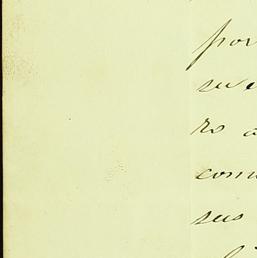 por
su
ro a
com
sus